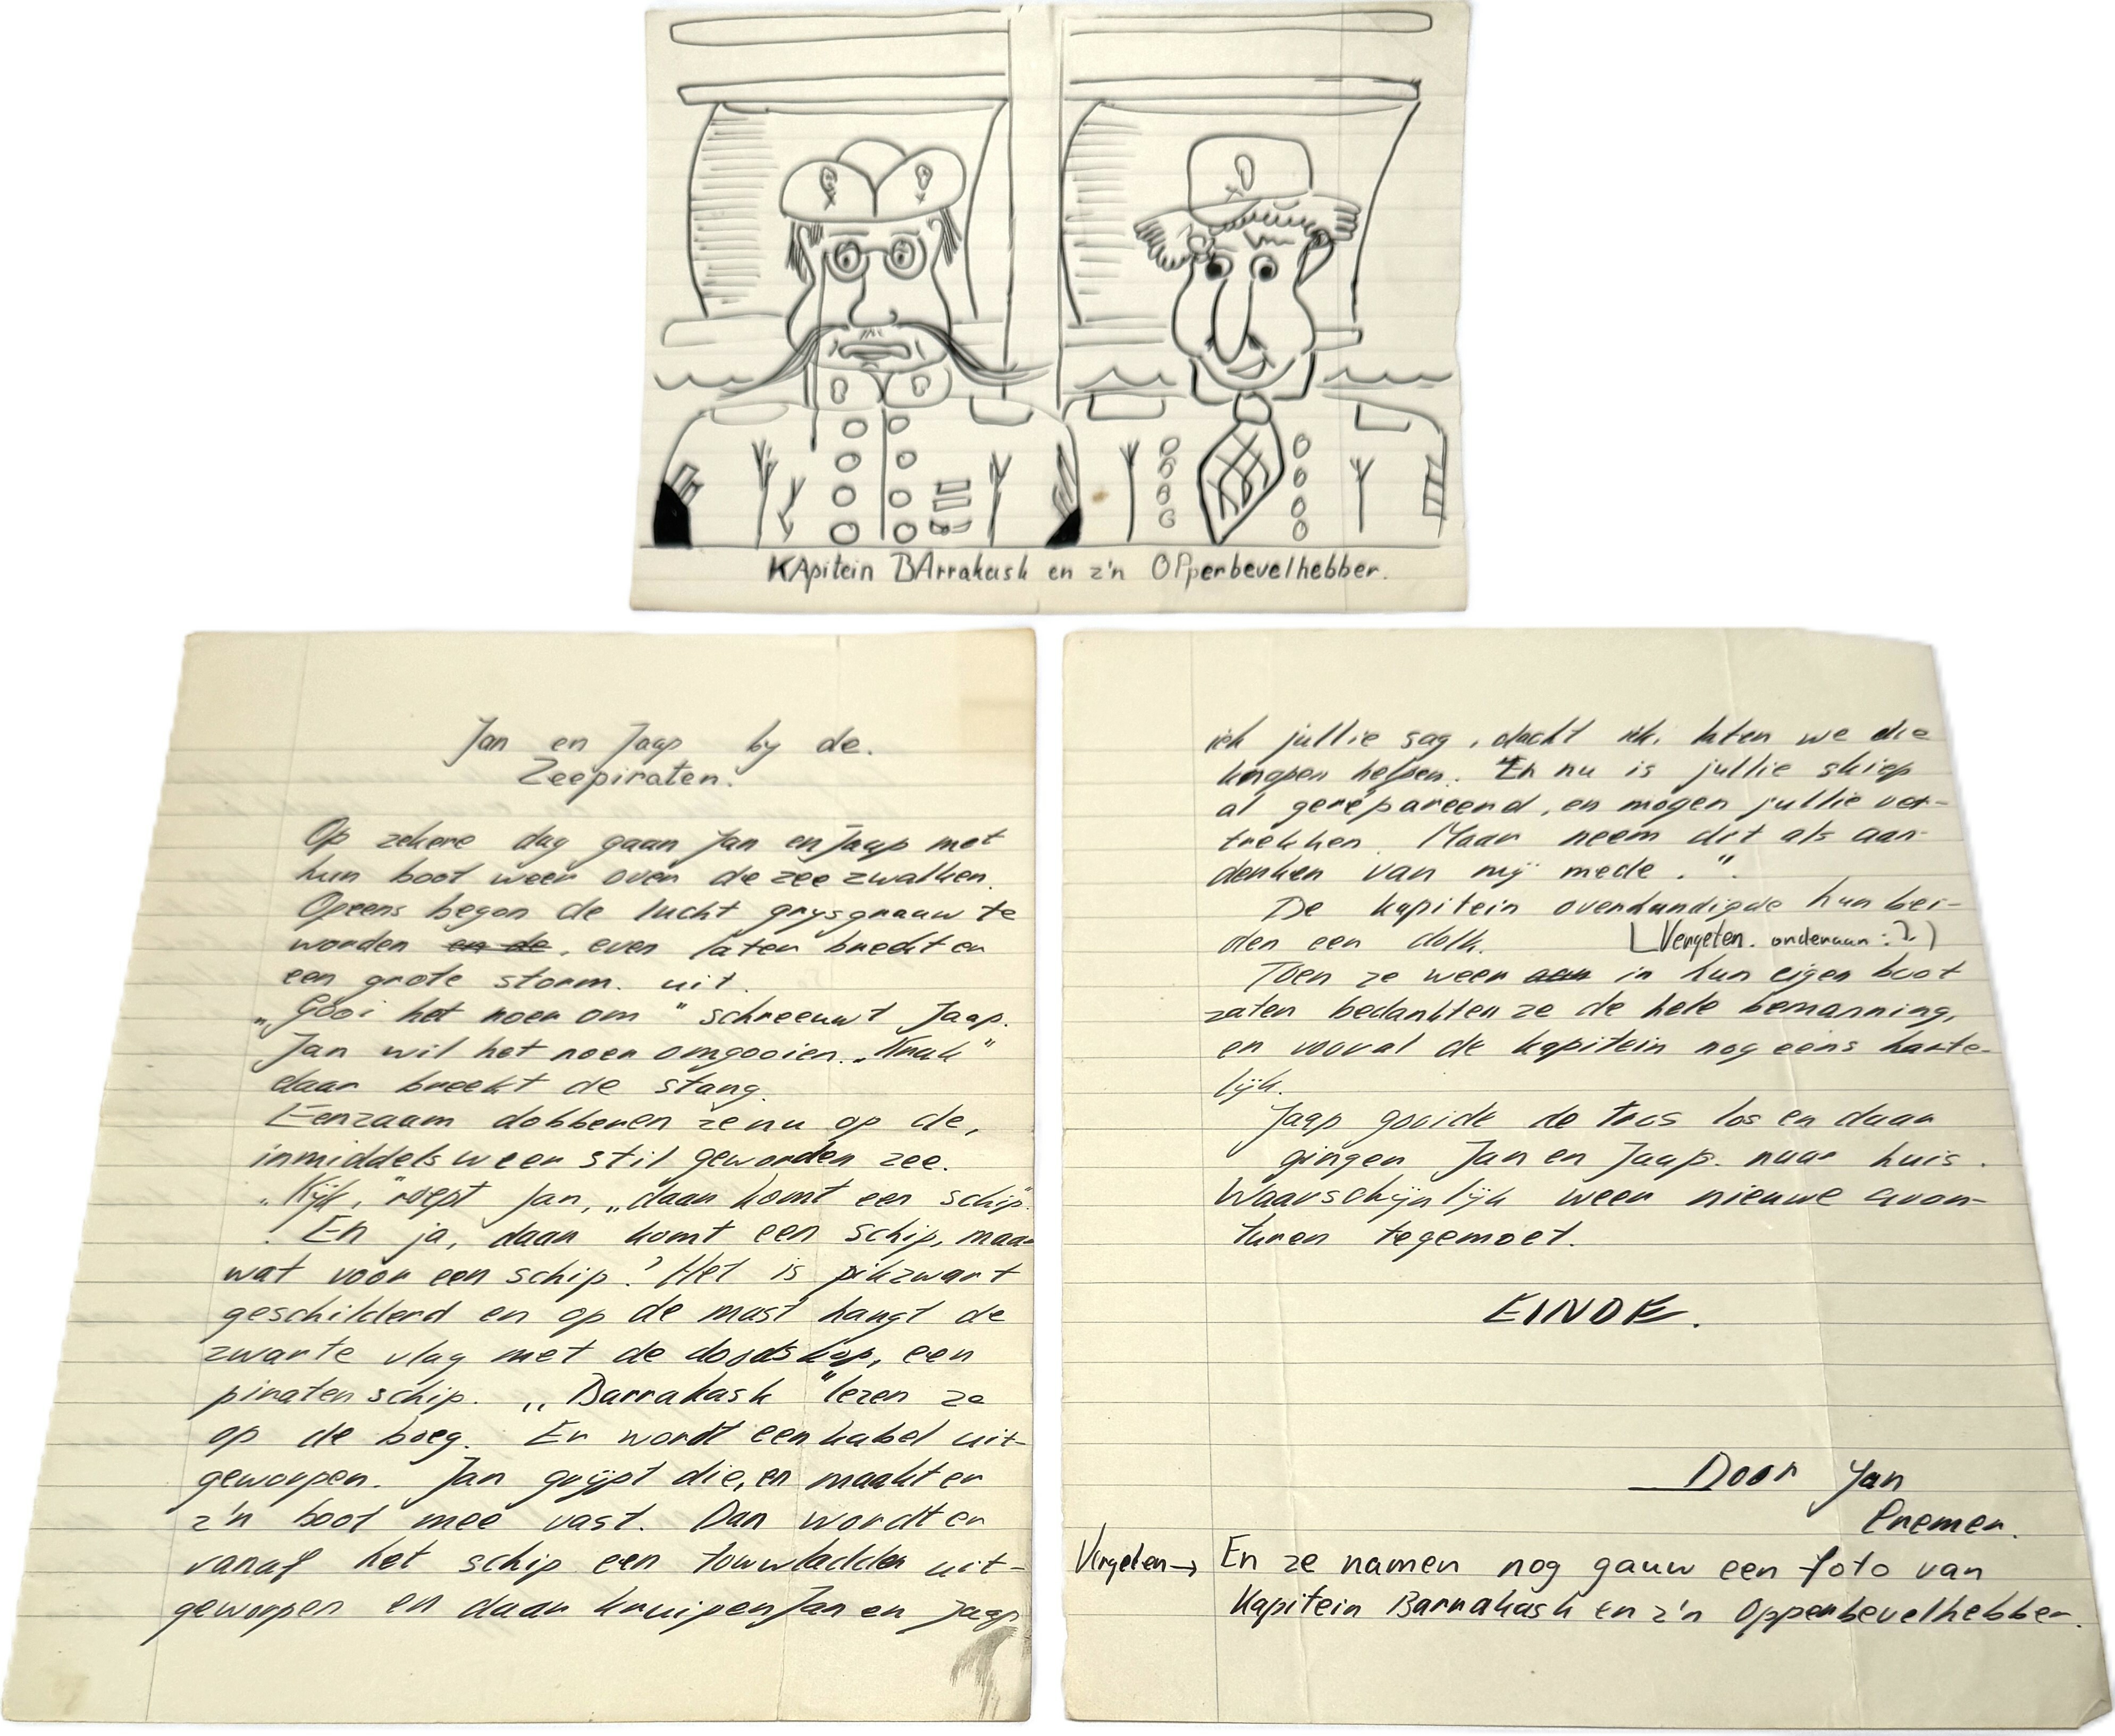 KApitein BArrakask en z'n OPperbevelhebber.
Jan en Jaap by de.
Zeepiraten.
Op zekere dag gaan Jan en Jaap met
hun boot weer over de zee zwalken.
Opeens begon de lucht grysgrauw te
worden en de, even later breekt er
een grote storm. uit.
„Gooi het roer om" schreeuwt Jaap.
Jan wil het roer omgooien. „Krak"
daar breekt de stang.
Eenzaam dobberen ze nu op de,
inmiddels weer stil geworden zee.
„Kijk," roept Jan, „daar komt een schip"
! En ja, daar komt een schip, maar
wat voor een schip? Het is pikzwart
geschilderd en op de mast hangt de
zwarte vlag met de doodskop, een
piratenschip. „Barrakask" lezen ze
op de boeg. Er wordt een kabel uit-
geworpen. Jan grijpt die, en maakt er
z'n boot mee vast. Dan wordt er
vanaf het schip een touwladder uit-
geworpen en daar kruipen Jan en Jaap
iek jullie sag, dacht iek, laten we die
knapen helpen. En nu is jullie skiep
al gerépareerd, en mogen jullie ver-
trekken. Maar neem dit als aan-
denken van mij mede.".
De kapitein overhandigde hun bei-
den een dolk. (Vergeten. onderaan:2)
Toen ze weer aan in hun eigen boot
zaten bedankten ze de hele bemanning,
en vooral de kapitein nog eens harte-
lijk.
Jaap gooide de tros los en daar
gingen Jan en Jaap. naar huis.
Waarschijnlijk weer nieuwe avon-
turen tegemoet.
EINDE.
Door Jan
Cremer.
Vergeten→ En ze namen nog gauw een foto van
Kapitein Barrakask en z'n Opperbevelhebber.